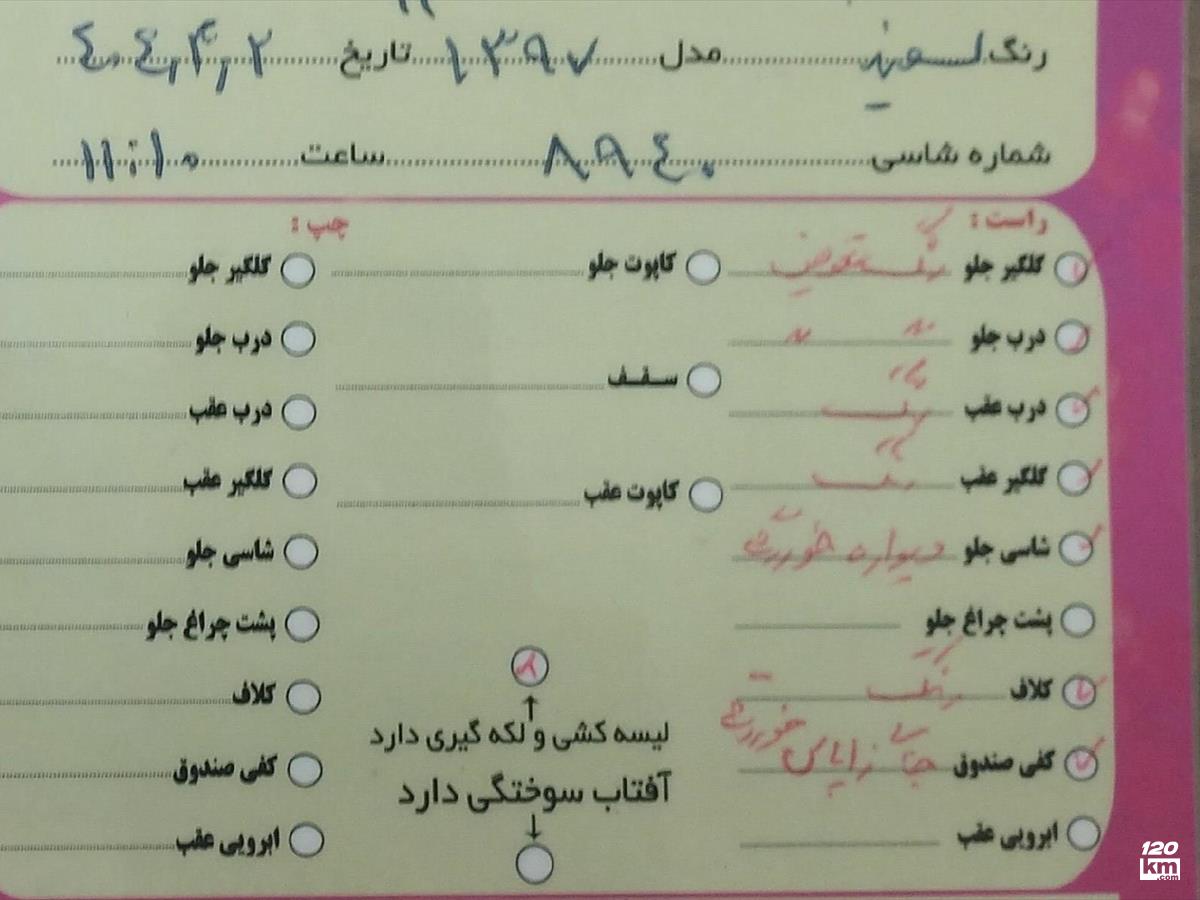 رنگ سفید مدل ۱۳۹۷ تاریخ ۴۰۴,۴,۲
شماره شاسی ۸۹۴۰ ساعت ۱۱:۱۰
راست : چپ :
گلگیر جلو رنگ تعویض کاپوت جلو گلگیر جلو
درب جلو 〃 〃 درب جلو
سقف
درب عقب رنگ درب عقب
گلگیر عقب رنگ کاپوت عقب گلگیر عقب
شاسی جلو دیواره خوردگی شاسی جلو
پشت چراغ جلو پشت چراغ جلو
کلاف رنگ کلاف
لیسه کشی و لکه گیری دارد
کفی صندوق جای زاپاس خوردگی کفی صندوق
آفتاب سوختگی دارد
ابرویی عقب ابرویی عقب
120
km
.com